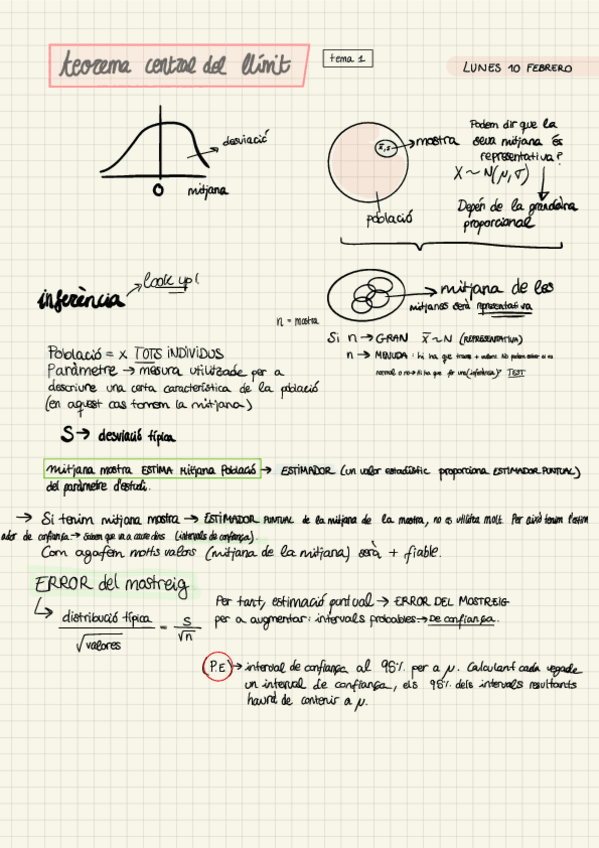 teorema central del límit
tema 1
LUNES 10 FEBRERO
desviació
0
mitjana
mostra
població
Podem dir que la
seva mitjana és
representativa?
X ~ N(μ, σ)
Depèn de la grandària
proporcional
inferència
look up!
n = mostra
mitjana de les
mitjanes serà representativa
Si n → GRAN x̄ ~ N (REPRESENTATIVA)
n → MENUDA
TEST
Població = x TOTS INDIVIDUS
Paràmetre → mesura utilitzade per a
descriure una certa característica de la població
(en aquest cas farem la mitjana)
S → desviació típica
mitjana mostra ESTIMA Mitjana Població → ESTIMADOR (un valor estadístic proporciona ESTIMADOR PUNTUAL)
del paràmetre d'estudi.
→ Si tenim mitjana mostra → ESTIMADOR PUNTUAL de la mitjana de la mostra, no es utilitza molt. Per això tenim l'estim
ador de confiança → (intervals de confiança).
Com agafem molts valors (mitjana de la mitjana) serà + fiable.
ERROR del mostreig
distribució típica / √valores = S / √n
Per tant, estimació puntual → ERROR DEL MOSTREIG
per a augmentar: intervals probables → De confiança.
P.E → interval de confiança al 95% per a μ. Calculant cada vegade
un interval de confiança, els 95% dels intervals resultants
haurà de contenir a μ.